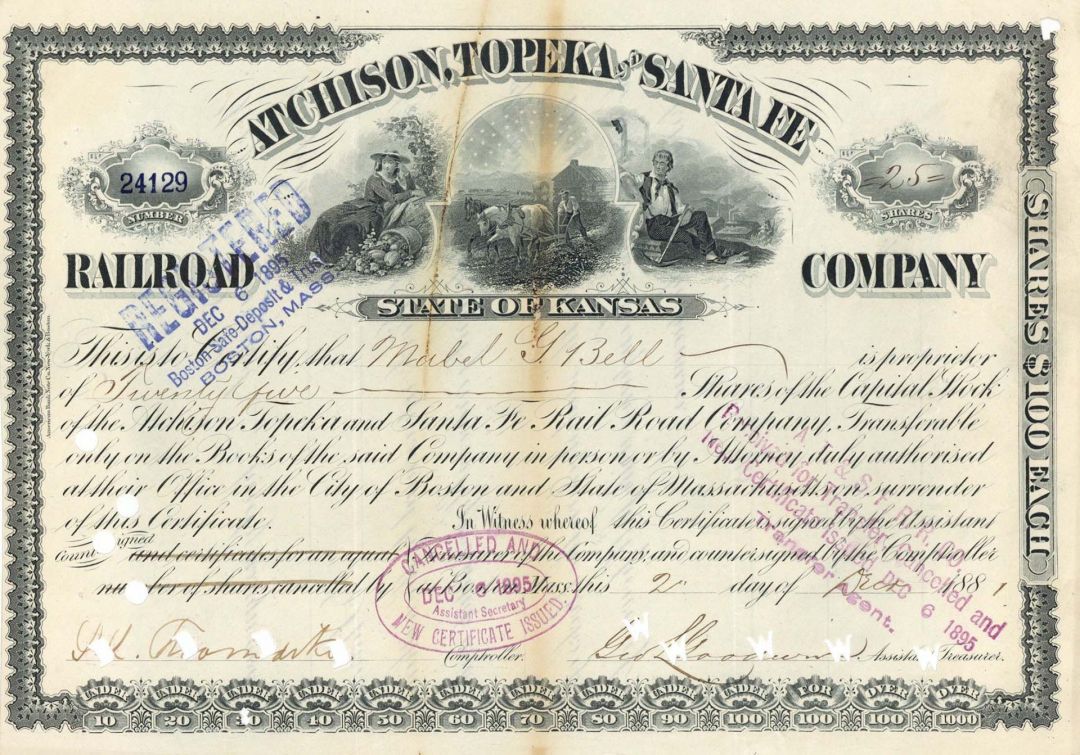 ATCHISON, TOPEKA AND SANTA FE
24129
NUMBER
25
SHARES
RAILROAD COMPANY
STATE OF KANSAS
REGISTERED
DEC 6 1895
Boston Safe-Deposit & Trust
BOSTON, MASS.
This is to Certify, that Mabel G Bell is proprietor
of Twenty five Shares of the Capital Stock
of the Atchison Topeka and Santa Fe Rail Road Company, Transferable
only on the Books of the said Company in person or by Attorney duly authorised
at their Office in the City of Boston and State of Massachusetts on surrender
of this Certificate. In Witness whereof this Certificate is signed by the Assistant
Treasurer of the Company, and countersigned by the Comptroller
and certificates for an equal
number of shares cancelled by
at Boston Mass. this 2 day of Dec 1881
Comptroller. Geo L Goodwin Assistant Treasurer.
CANCELLED AND
DEC 6 1895
Assistant Secretary
NEW CERTIFICATE ISSUED.
A. T. & S. F. R. R. CO.
Received for Transfer Cancelled and
New Certificate Issued DEC 6 1895
Transfer Agent.
SHARES $100 EACH
American Bank Note Co. New York & Boston.
W W W W W
UNDER UNDER UNDER UNDER UNDER UNDER UNDER UNDER UNDER UNDER FOR OVER OVER
10 20 30 40 50 60 70 80 90 100 100 100 1000